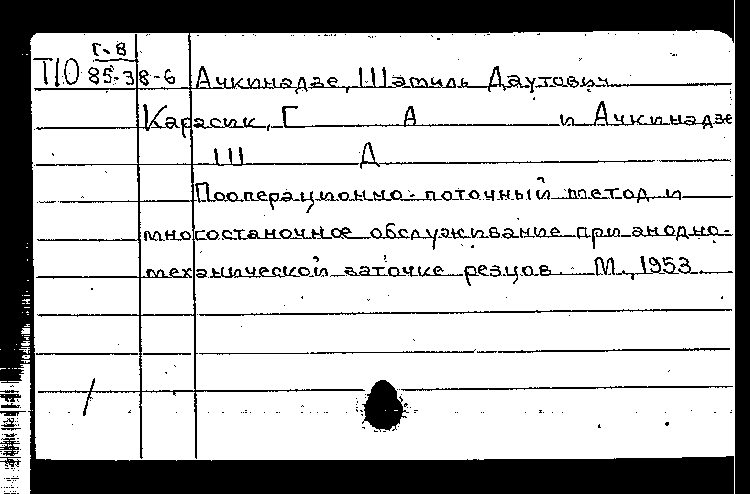 Г-8
Т10 85-38-6 Ачкинадзе, Шамиль Даутович
Карасик, Г А и Ачкинадзе
Ш Д
Пооперационно-поточный метод и
многостаночное обслуживание при анодно-
механической заточке резцов. М., 1953.